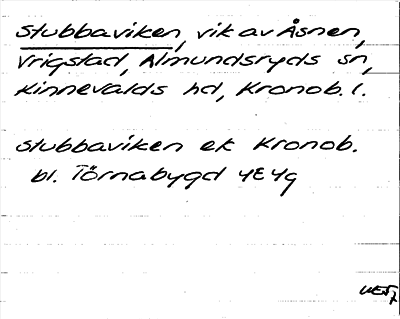 Stubbaviken, vik av Åsnen,
Vrigstad, Almundsryds sn,
Kinnevalds hd, Kronob. l.
Stubbaviken ek Kronob.
bl. Törnabygd 4E4g